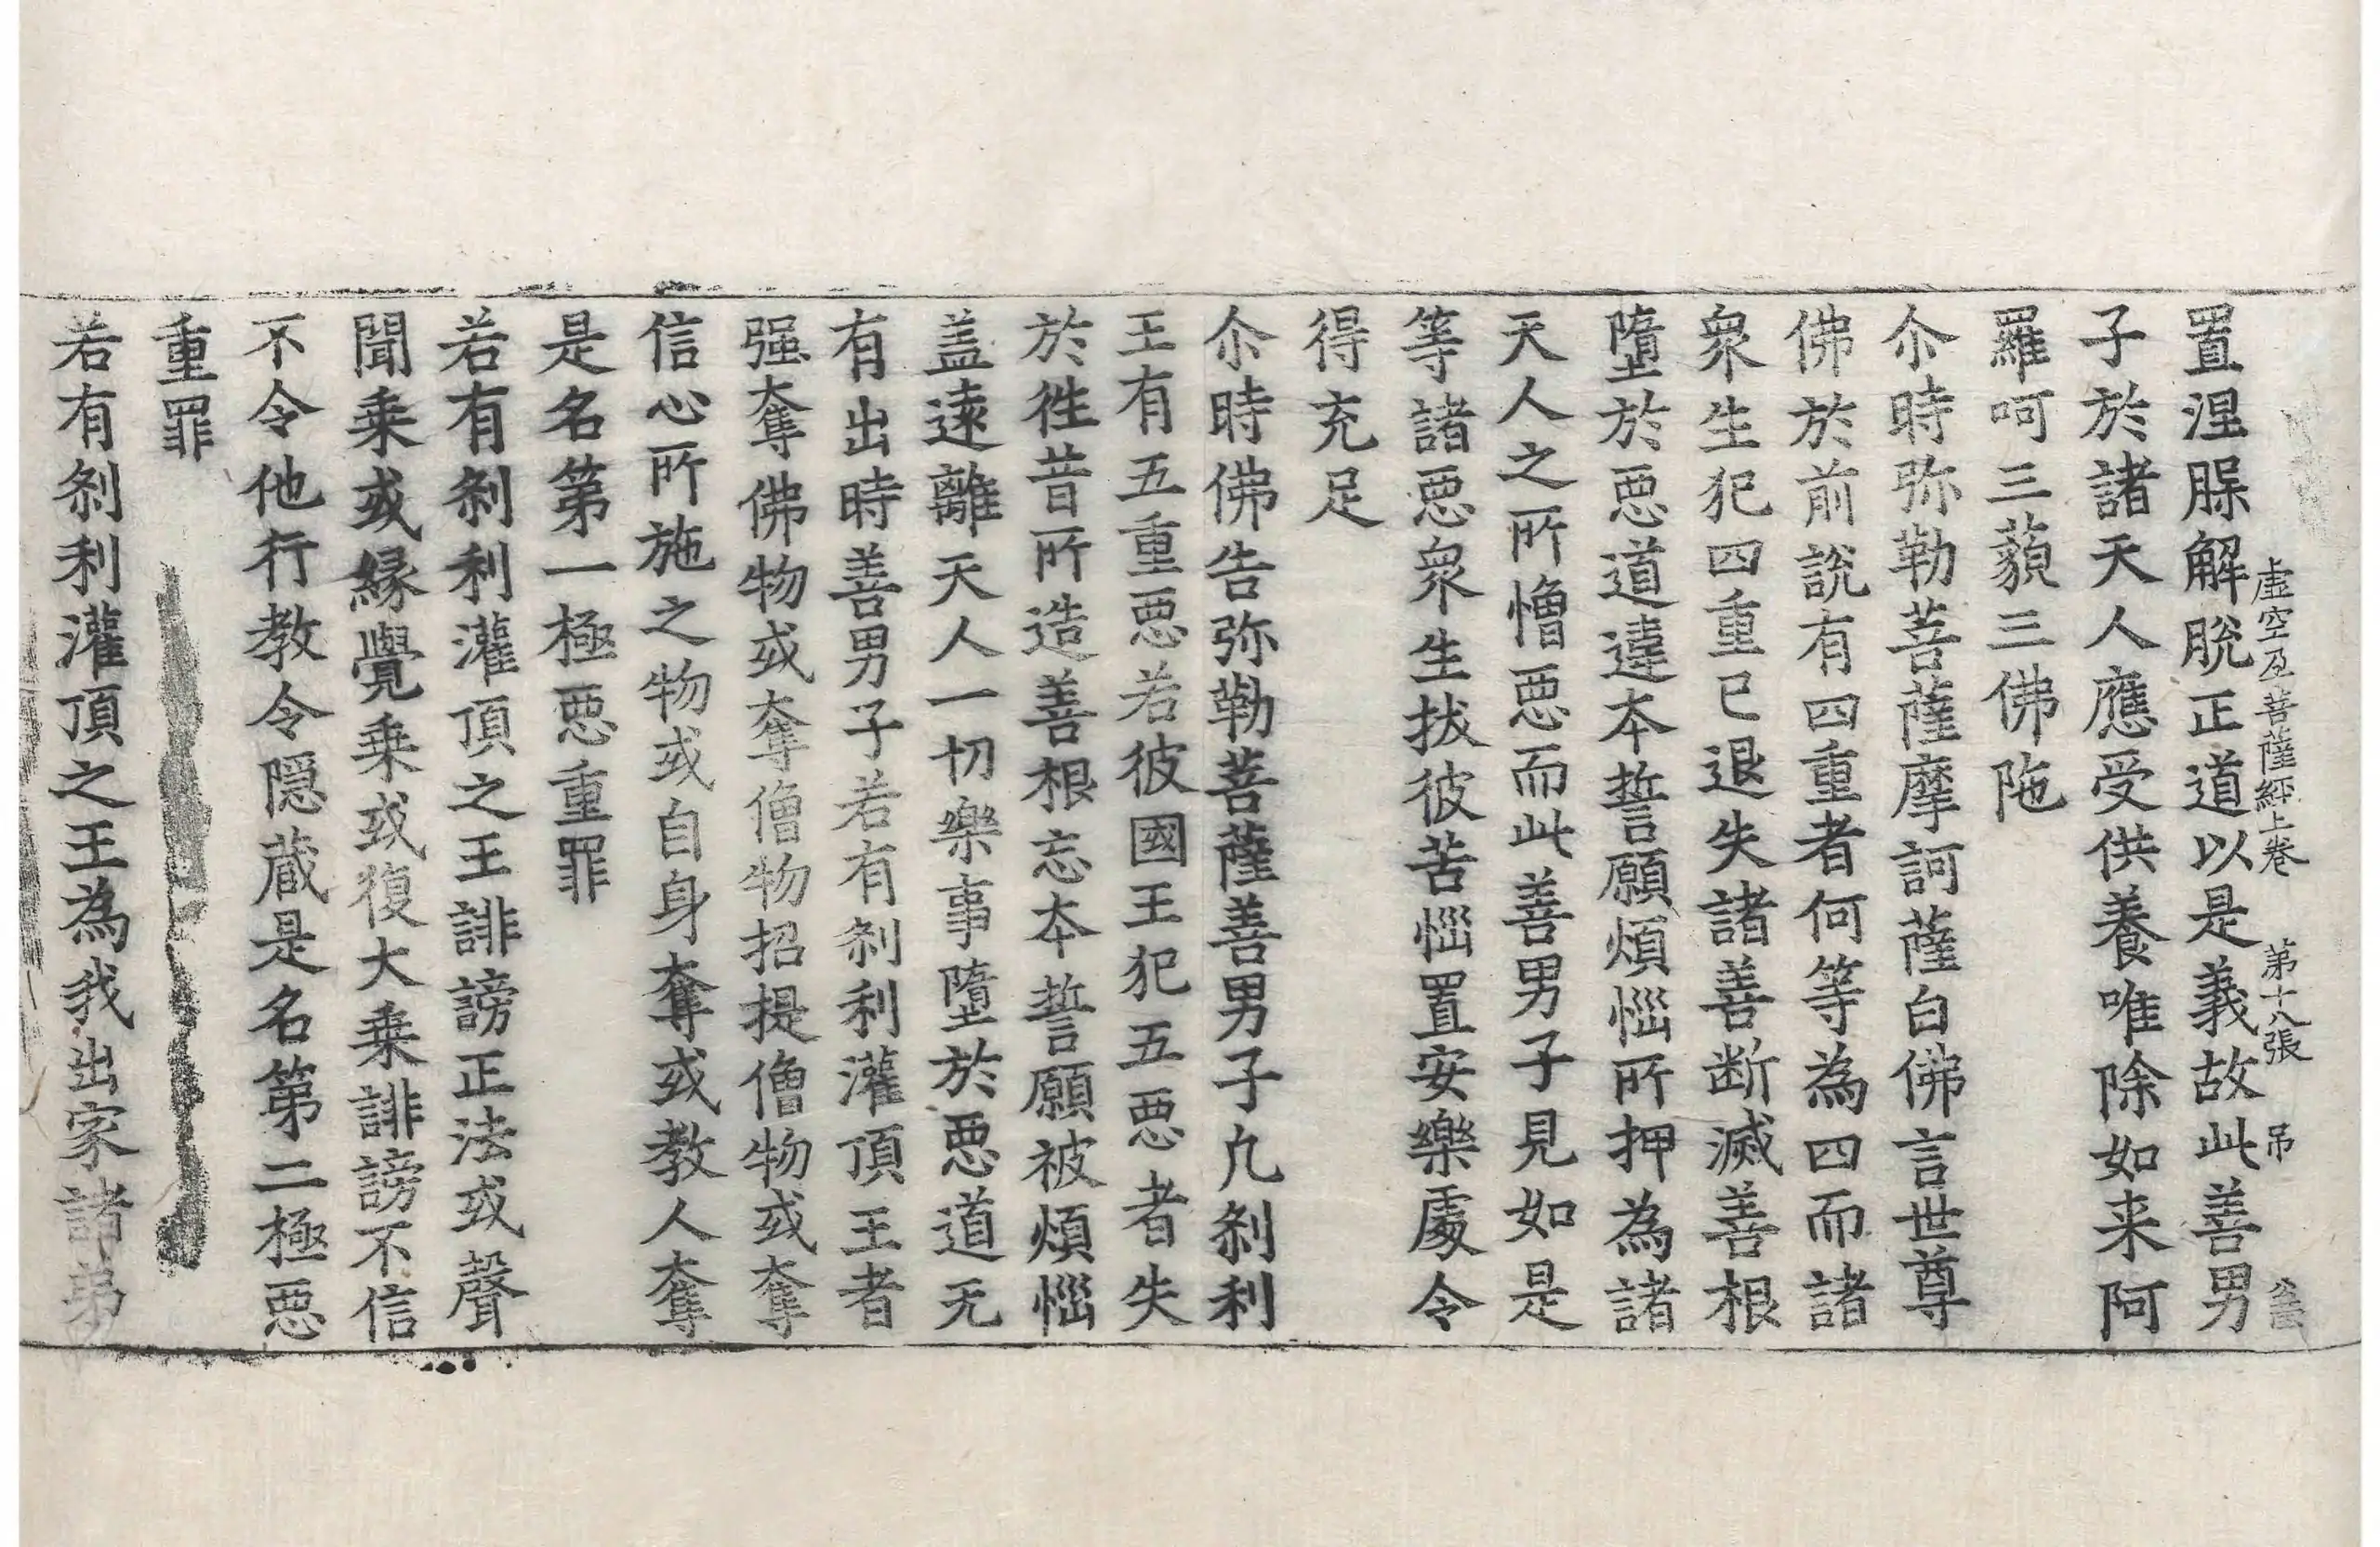 虛空孕菩薩經上卷　第十八張　吊
置涅脲解脫正道以是義故此善男
子於諸天人應受供養唯除如来阿
羅呵三藐三佛陁
尒時弥勒菩薩摩訶薩白佛言世尊
佛於前說有四重者何等為四而諸
衆生犯四重已退失諸善断滅善根
墮於惡道違本誓願煩惱所押為諸
天人之所憎惡而此善男子見如是
等諸惡衆生拔彼苦惱置安樂處令
得充足
尒時佛告弥勒菩薩善男子凢剎利
王有五重惡若彼國王犯五惡者失
於徃昔所造善根忘本誓願被煩惱
盖遠離天人一切樂事墮於惡道无
有出時善男子若有剎利灌頂王者
强奪佛物或奪僧物招提僧物或奪
信心所施之物或自身奪或教人奪
是名第一極惡重罪
若有剎利灌頂之王誹謗正法或聲
聞乗或縁覺乗或復大乗誹謗不信
不令他行教令隱蔵是名第二極惡
重罪
若有剎利灌頂之王為我出家諸弟